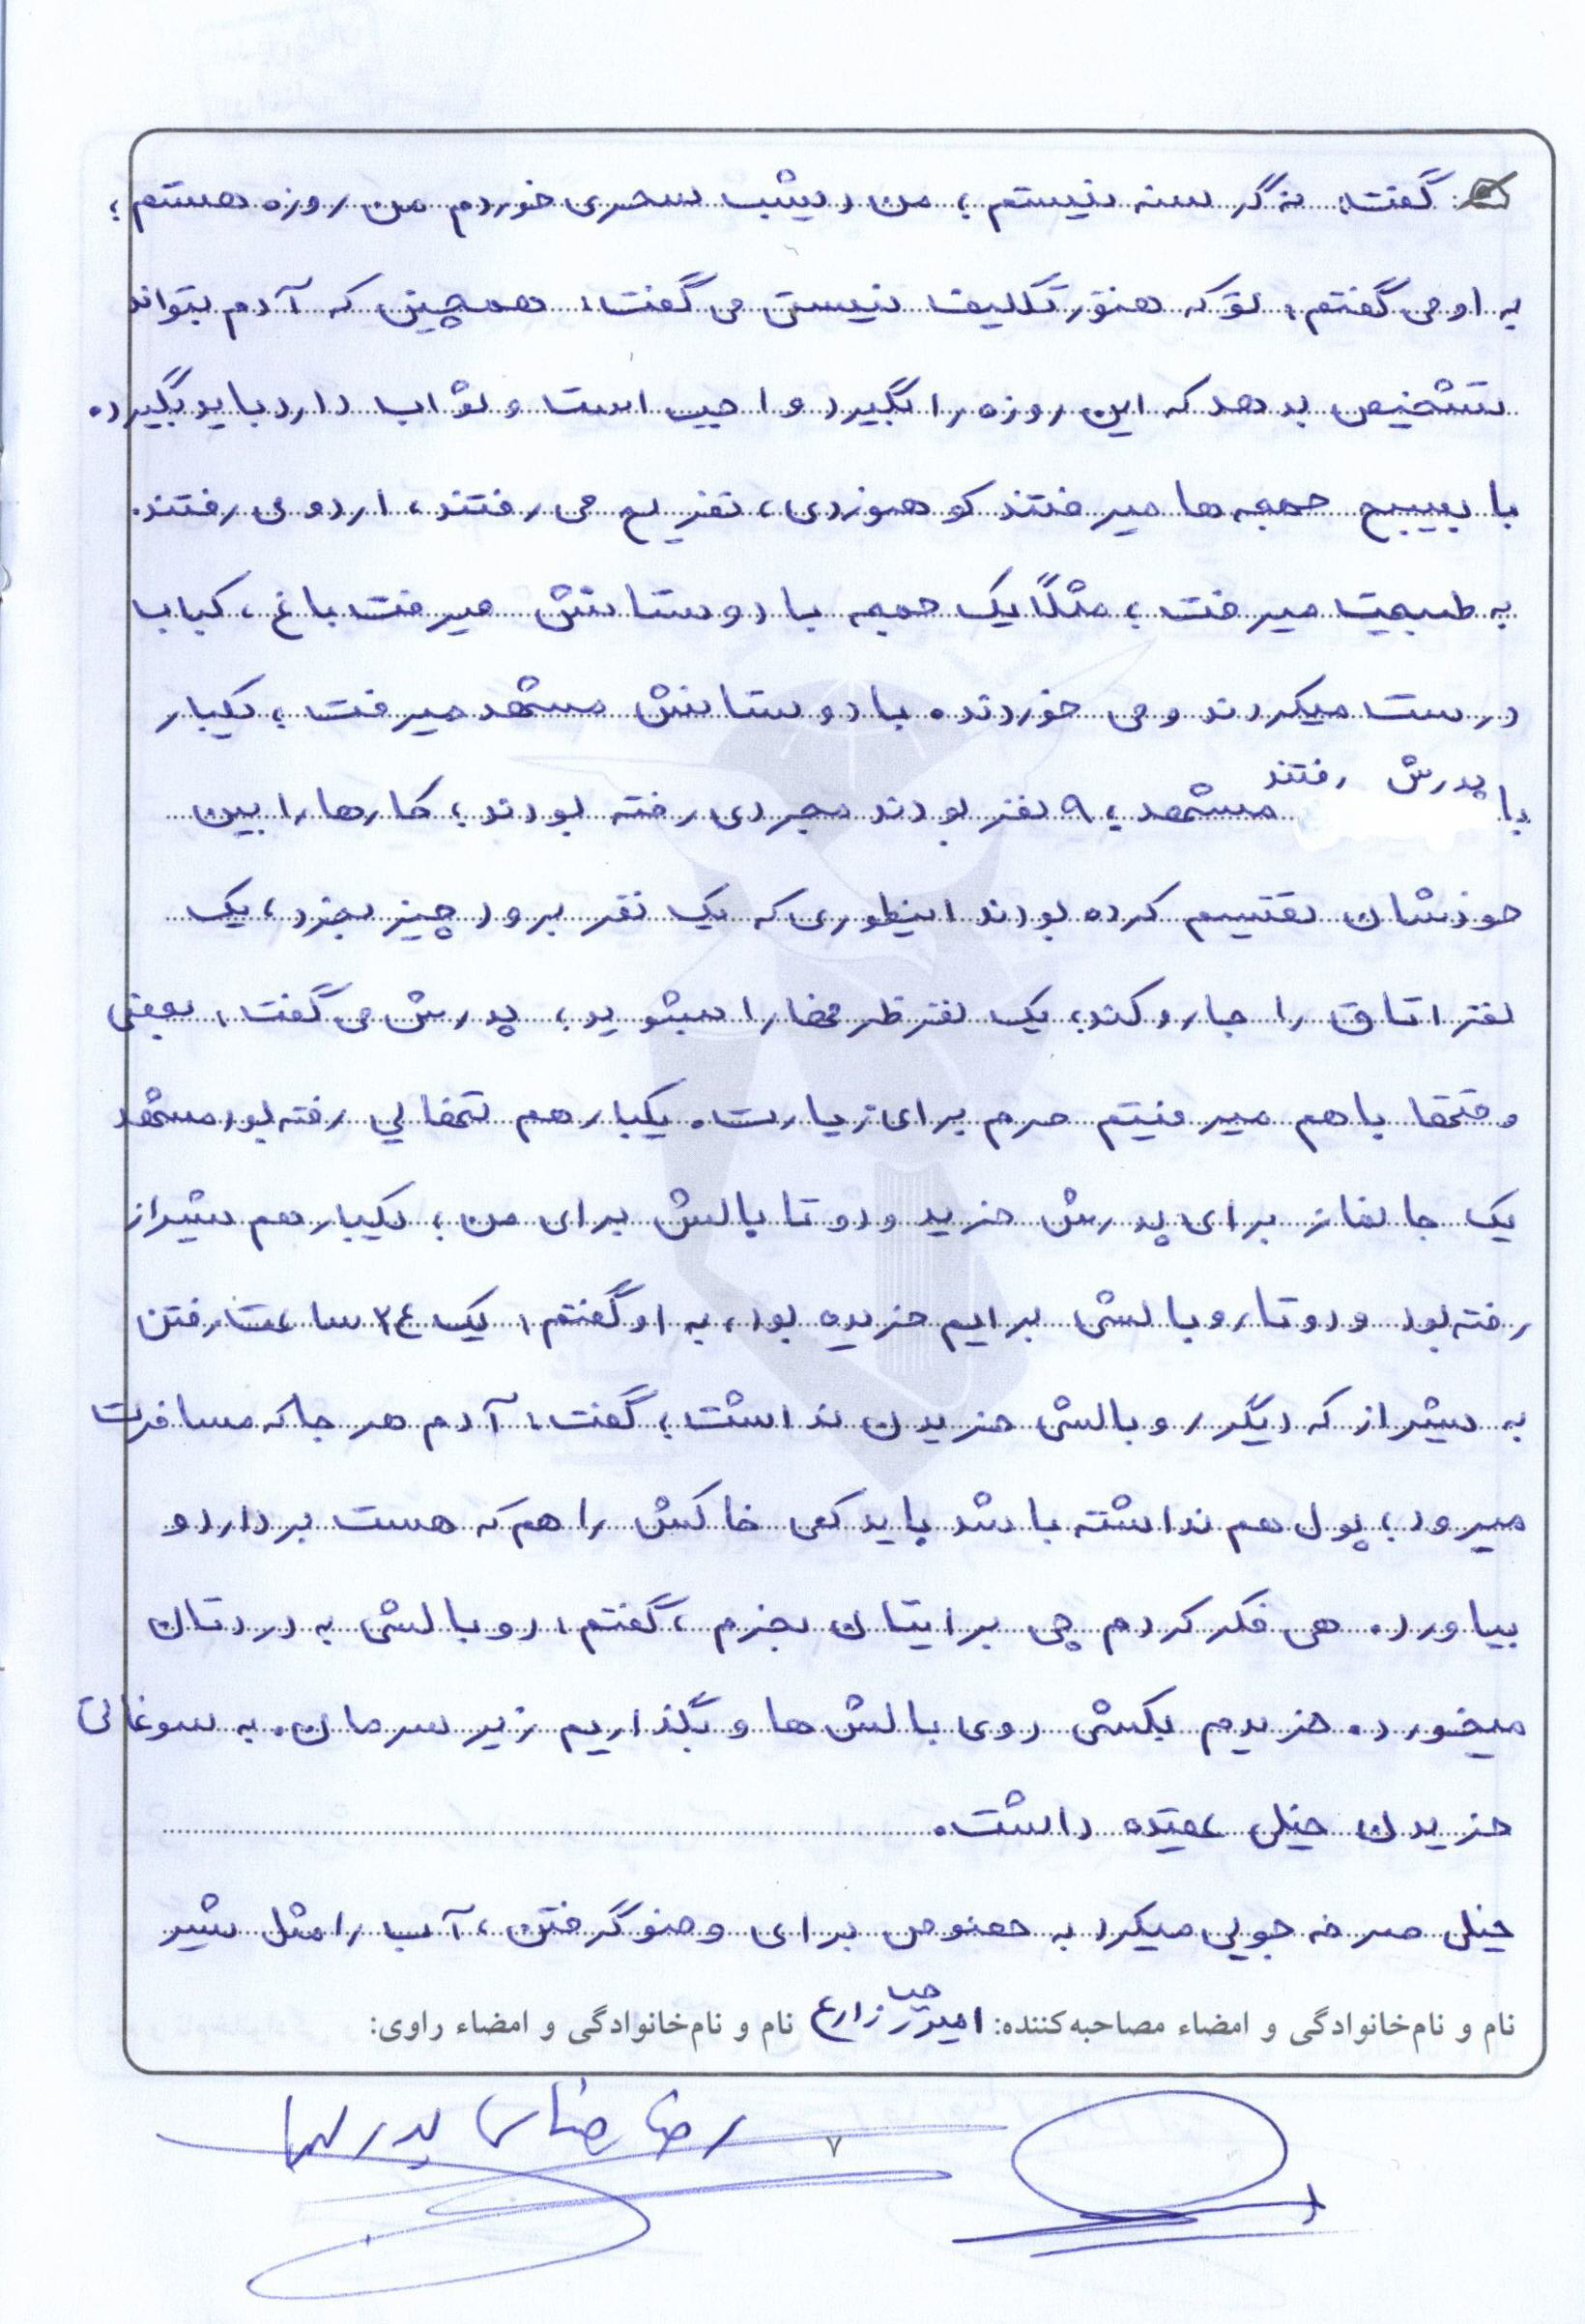 گفت: نه گرسنه نیستم؛ من دیشب سحری خوردم من روزه هستم؛
به او می گفتم: تو که هنوز تکلیف نیستی می گفت: همچین که آدم بتواند
تشخیص بدهد که این روزه را بگیرد واجب است و ثواب دارد باید بگیرد.
با بسیج جمعه ها میرفتند کوهنوردی، تفریح می رفتند، اردو می رفتند.
به طبیعت میرفت؛ مثلاً یک جمعه با دوستانش میرفت باغ، کباب
درست میکردند و می خوردند. با دوستانش مشهد میرفت؛ یکبار
با پدرش رفتند مشهد؛ ۹ نفر بودند مجردی رفته بودند؛ کارها را بین
خودشان تقسیم کرده بودند اینطوری که یک نفر برود چیز بخرد، یک
نفر اتاق را جارو کند؛ یک نفر ظرفها را بشوید؛ پدرش می گفت: بعضی
وقتها با هم میرفتیم حرم برای زیارت. یکبار هم تنهایی رفته بود مشهد
یک جانماز برای پدرش خرید و دو تا بالش برای من؛ یکبار هم شیراز
رفته بود و دو تا روبالشی برایم خریده بود، به او گفتم: یک ۲۴ ساعت رفتن
به شیراز که دیگر روبالشی خریدن نداشت؛ گفت: آدم هر جا که مسافرت
میرود؛ پول هم نداشته باشد باید کمی خاکش را هم که هست بردارد و
بیاورد. هی فکر کردم چی برایتان بخرم، گفتم: روبالشی به دردتان
میخورد. خریدم بکشی روی بالش ها و بگذاریم زیر سرمان. به سوغاتی
خریدن خیلی عقیده داشت.
خیلی صرفه جویی میکرد به خصوص برای وضو گرفتن، آب را مثل شیر
نام و نام‌خانوادگی و امضاء مصاحبه‌کننده: زارع نام و نام‌خانوادگی و امضاء راوی:
۷